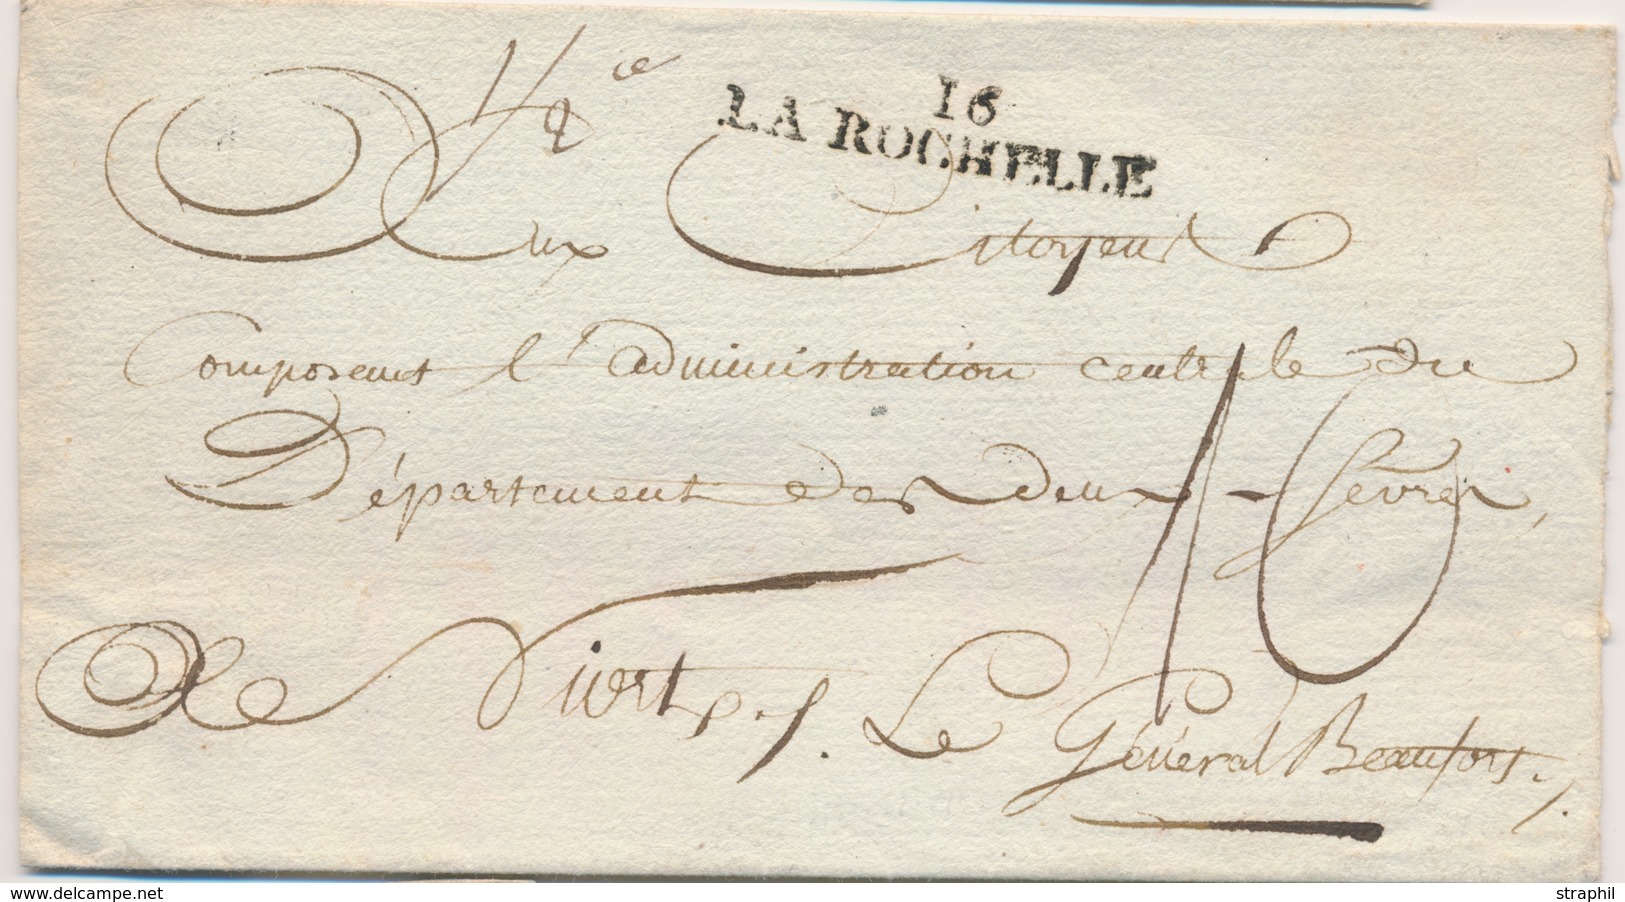 1/2 ce
16
LA ROCHELLE
Aux Citoyens
Composans l'administration centrale du
Département des deux-Sèvres,
A Niort
Le Général Beaufort
10
www.delcampe.net
straphil